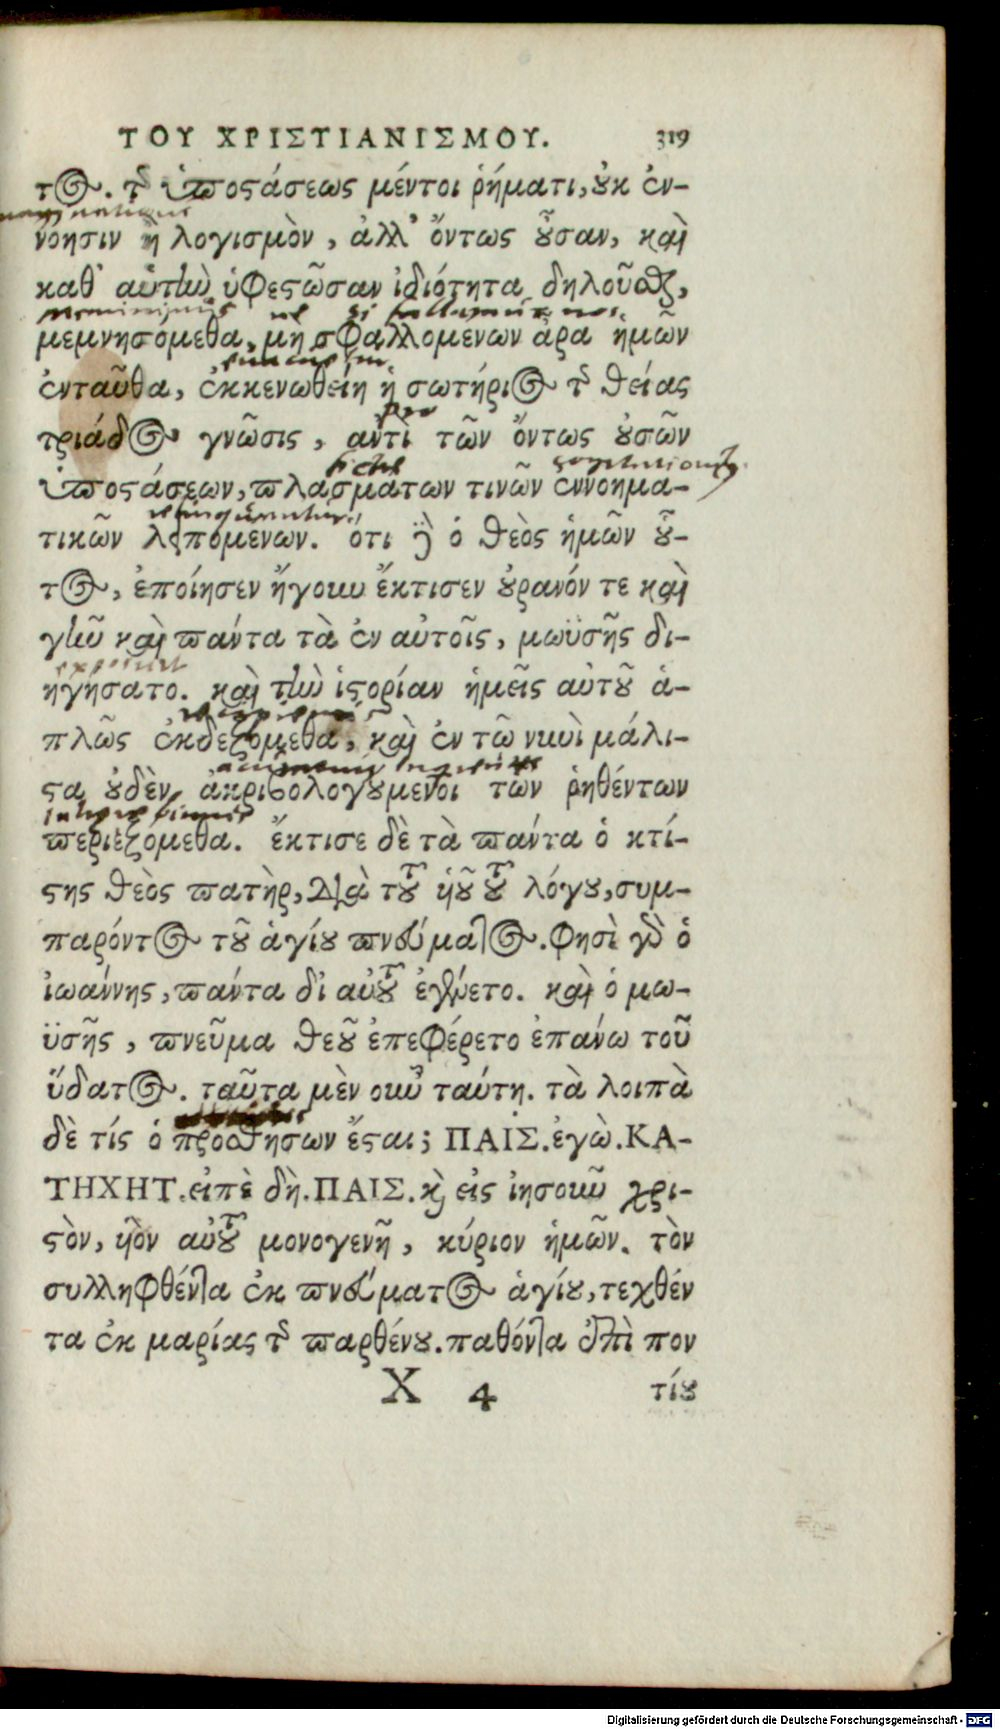 ΤΟΥ ΧΡΙΣΤΙΑΝΙΣΜΟΥ. 319
τος. τῆς ὑποστάσεως μέντοι ῥήματι, οὐκ ἐν-
νόησιν ἢ λογισμὸν, ἀλλ' ὄντως οὖσαν, καὶ
καθ' αὑτὴν ὑφεστῶσαν ἰδιότητα δηλοῦσθαι,
μεμνησόμεθα, μὴ σφαλλομένων ἄρα ἡμῶν
ἐνταῦθα, ἐκκενωθείη ἡ σωτήριος τῆς θείας
τριάδος γνῶσις, ἀντὶ τῶν ὄντως οὐσῶν
ὑποστάσεων, πλασμάτων τινῶν ἐννοημα-
τικῶν λειπομένων. ὅτι δὲ ὁ θεὸς ἡμῶν οὗ-
τος, ἐποίησεν ἤγουν ἔκτισεν οὐρανόν τε καὶ
γῆν καὶ πάντα τὰ ἐν αὐτοῖς, μωϋσῆς δι-
ηγήσατο. καὶ τὴν ἱστορίαν ἡμεῖς αὐτοῦ ἁ-
πλῶς ἐκδεξόμεθα, καὶ ἐν τῷ νυνὶ μάλι-
στα οὐδὲν ἀκριβολογούμενοι τῶν ῥηθέντων
περιεξόμεθα. ἔκτισε δὲ τὰ πάντα ὁ κτί-
στης θεὸς πατὴρ, διὰ τοῦ υἱοῦ τοῦ λόγου, συμ-
παρόντος τοῦ ἁγίου πνεύματος. φησὶ γὰρ ὁ
ἰωάννης, πάντα δι αὐτοῦ ἐγένετο. καὶ ὁ μω-
ϋσῆς, πνεῦμα θεοῦ ἐπεφέρετο ἐπάνω τοῦ
ὕδατος. ταῦτα μὲν οὖν ταύτῃ. τὰ λοιπὰ
δὲ τίς ὁ προσθήσων ἔσται; ΠΑΙΣ. ἐγὼ. ΚΑ-
ΤΗΧΗΤ. εἰπὲ δὴ. ΠΑΙΣ. καὶ εἰς ἰησοῦν χρι-
στὸν, υἱὸν αὐτοῦ μονογενῆ, κύριον ἡμῶν. τὸν
συλληφθέντα ἐκ πνεύματος ἁγίου, τεχθέν
τα ἐκ μαρίας τῆς παρθένου. παθόντα ἐπὶ πον
Χ 4 τίου
Digitalisierung gefördert durch die Deutsche Forschungsgemeinschaft - DFG